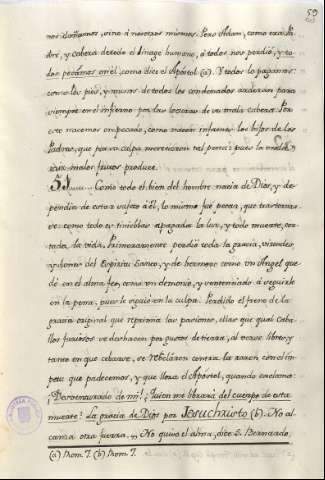 59
nos dañamos, sino á nosotros mismos. Pero Adan, como era Pa-
dre, y cabeza de todo el linage humano, á todos nos perdió, y to-
dos pecamos en él, como dice el Apostol (a). Y todos lo pagamos
como los pies, y manos de todos los condenados arderán para
siempre en el infierno por las locuras de su mala cabeza. Por
esto nacemos en pecado, como nacen infames los hijos de los
Padres, que por su culpa merecieron tal pena: pues la mala
raiz malos frutos produce.
Como todo el bien del hombre nacia de Dios, y de-
pendia de estar sujeto á él, lo mismo fue pecar, que trastornar-
se como todo en tinieblas apagada la luz, y todo muerte, cor-
tada la vida. Primeramente perdió toda la gracia, virtudes,
y dones del Espiritu Santo, y de hermoso como un Angel que-
dó en el alma feo, como un demonio, y sentenciado á seguirle
en la pena, pues le siguió en la culpa. Perdido el freno de la
gracia original que reprimia las pasiones, ellas que qual caba-
llos furiosos se deshacen por gustos de tierra, al verse libres, y
tanto en que cebarse, se rebelaron contra la razon con el im-
petu que padecemos, y que llora el Apostol, quando exclama:
¡Desventurado de mi! ¿Quien me librará del cuerpo de esta
muerte? La gracia de Dios por Jesuchristo (b). No al-
canza otra fuerza. No quiso el alma, dice S. Bernardo,
(a) Rom. 7. (b) Rom. 7.